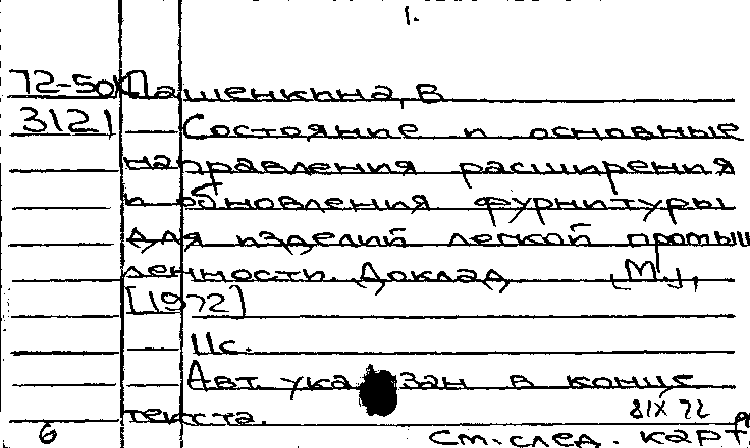 1.
72-50 Пашенкина, В
3121 Состояние и основные
направления расширения
и обновления фурнитуры
для изделий легкой промыш
ленности. Доклад [М.],
[1972]
11с.
Авт. ука зан в конце
текста.
81X 72
6 см. след. карт